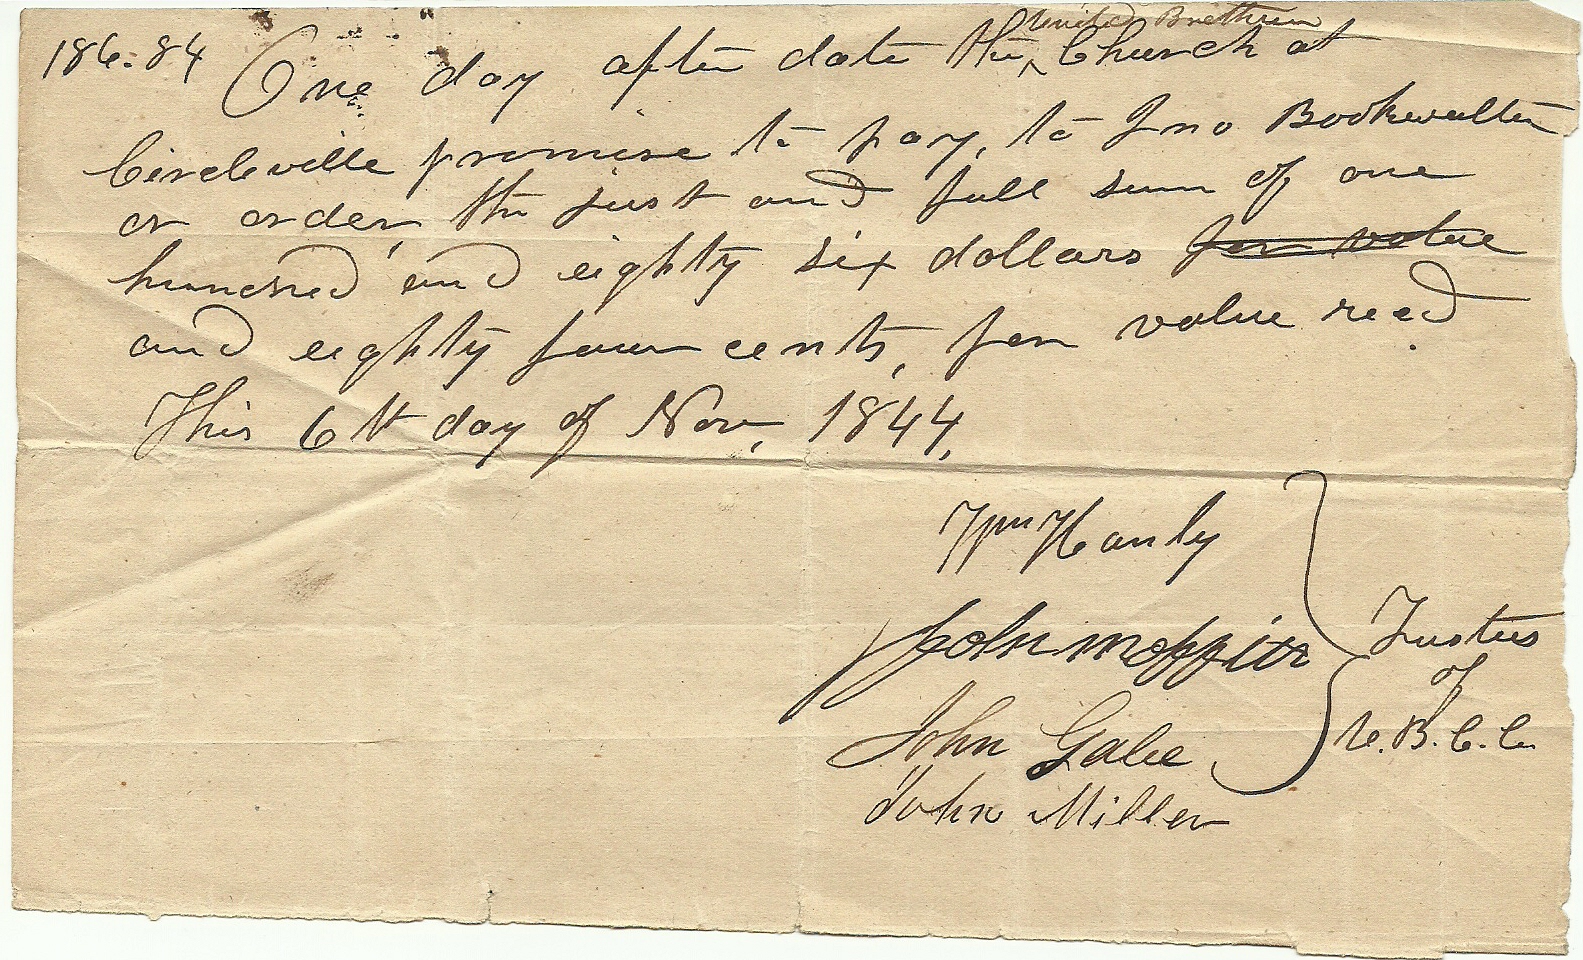 United Brethren
186.84 One day after date the ‸ Church at
Circleville promise to pay, to Jno Bookwalter
or order, the just and full sum of one
hundred and eighty six dollars for value
and eighty four cents, for value recd.
This 6th day of Nov, 1844,
Wm Hanly
John Moffitt
John Gabe
John Miller
Trustees
of
U.B.C.C.